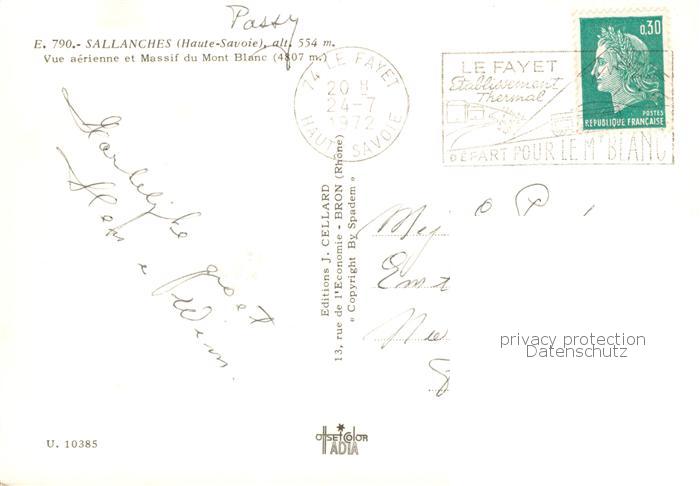 Passy
E. 790.- SALLANCHES (Haute-Savoie), alt. 554 m.
Vue aérienne et Massif du Mont Blanc (4807 m.)
74 LE FAYET
20 H
24-7
1972
HAUTE SAVOIE
LE FAYET
Etablissement
Thermal
DÉPART POUR LE Mt BLANC
0,30
POSTES
RÉPUBLIQUE FRANÇAISE
Hartelijke groet
Wim
Editions J. CELLARD
13, rue de l'Economie - BRON (Rhône)
« Copyright By Spadem »
Mej
privacy protection
Datenschutz
U. 10385
offset color
ADIA